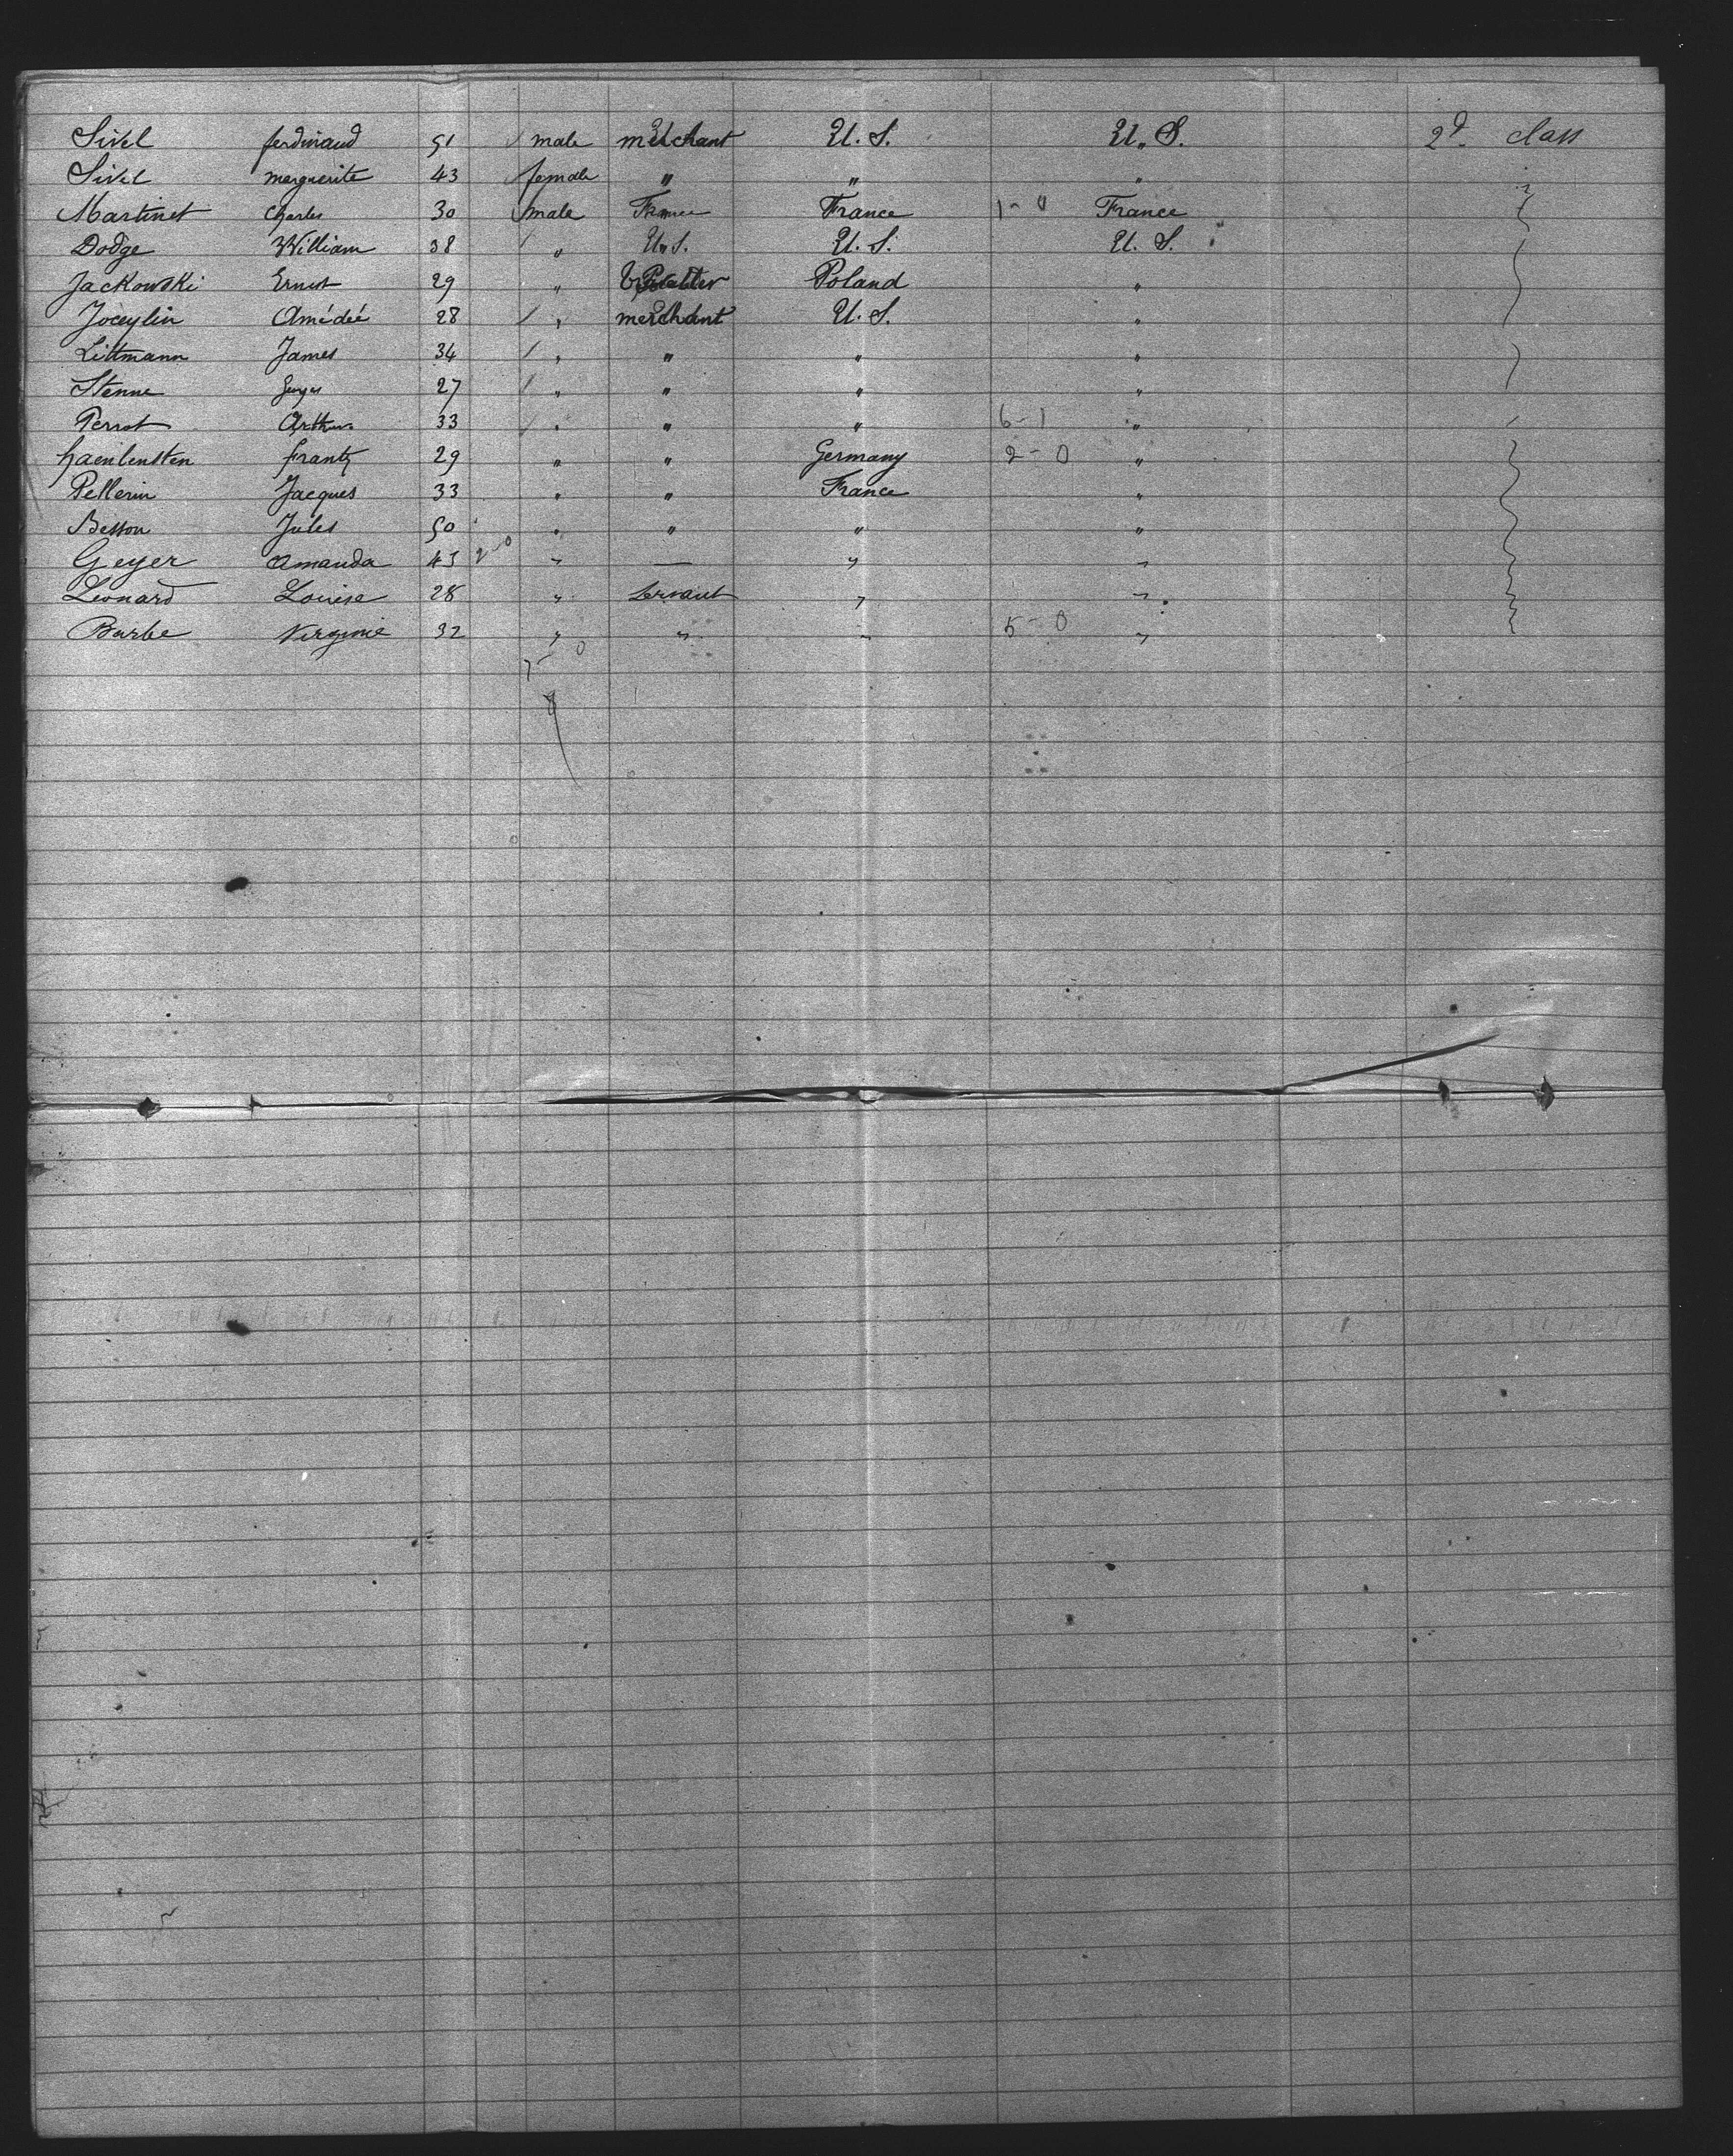 Sivel ferdinand 51 male merchant U.S. U.S. 2d class
Sivel marguerite 43 female " " "
Martinet Charles 30 male France France 1-0 France
Dodge William 38 " U.S. U.S. U.S.
Jackowski Ernest 29 " Poland "
Joceylin Amédeé 28 " merchant U.S. "
Littmann James 34 " " " "
Stenne Georges 27 " " " "
Perrot Arthur 33 " " " 6-1 "
haenlensten frantz 29 " " Germany 2-0 "
Pellerin Jacques 33 " " France "
Besson Jules 50 " " " "
Geyer Amanda 43 2-0 " — " "
Léonard Louise 28 " Servant " "
Barbe Virginie 32 " " " 5-0 "
7-0